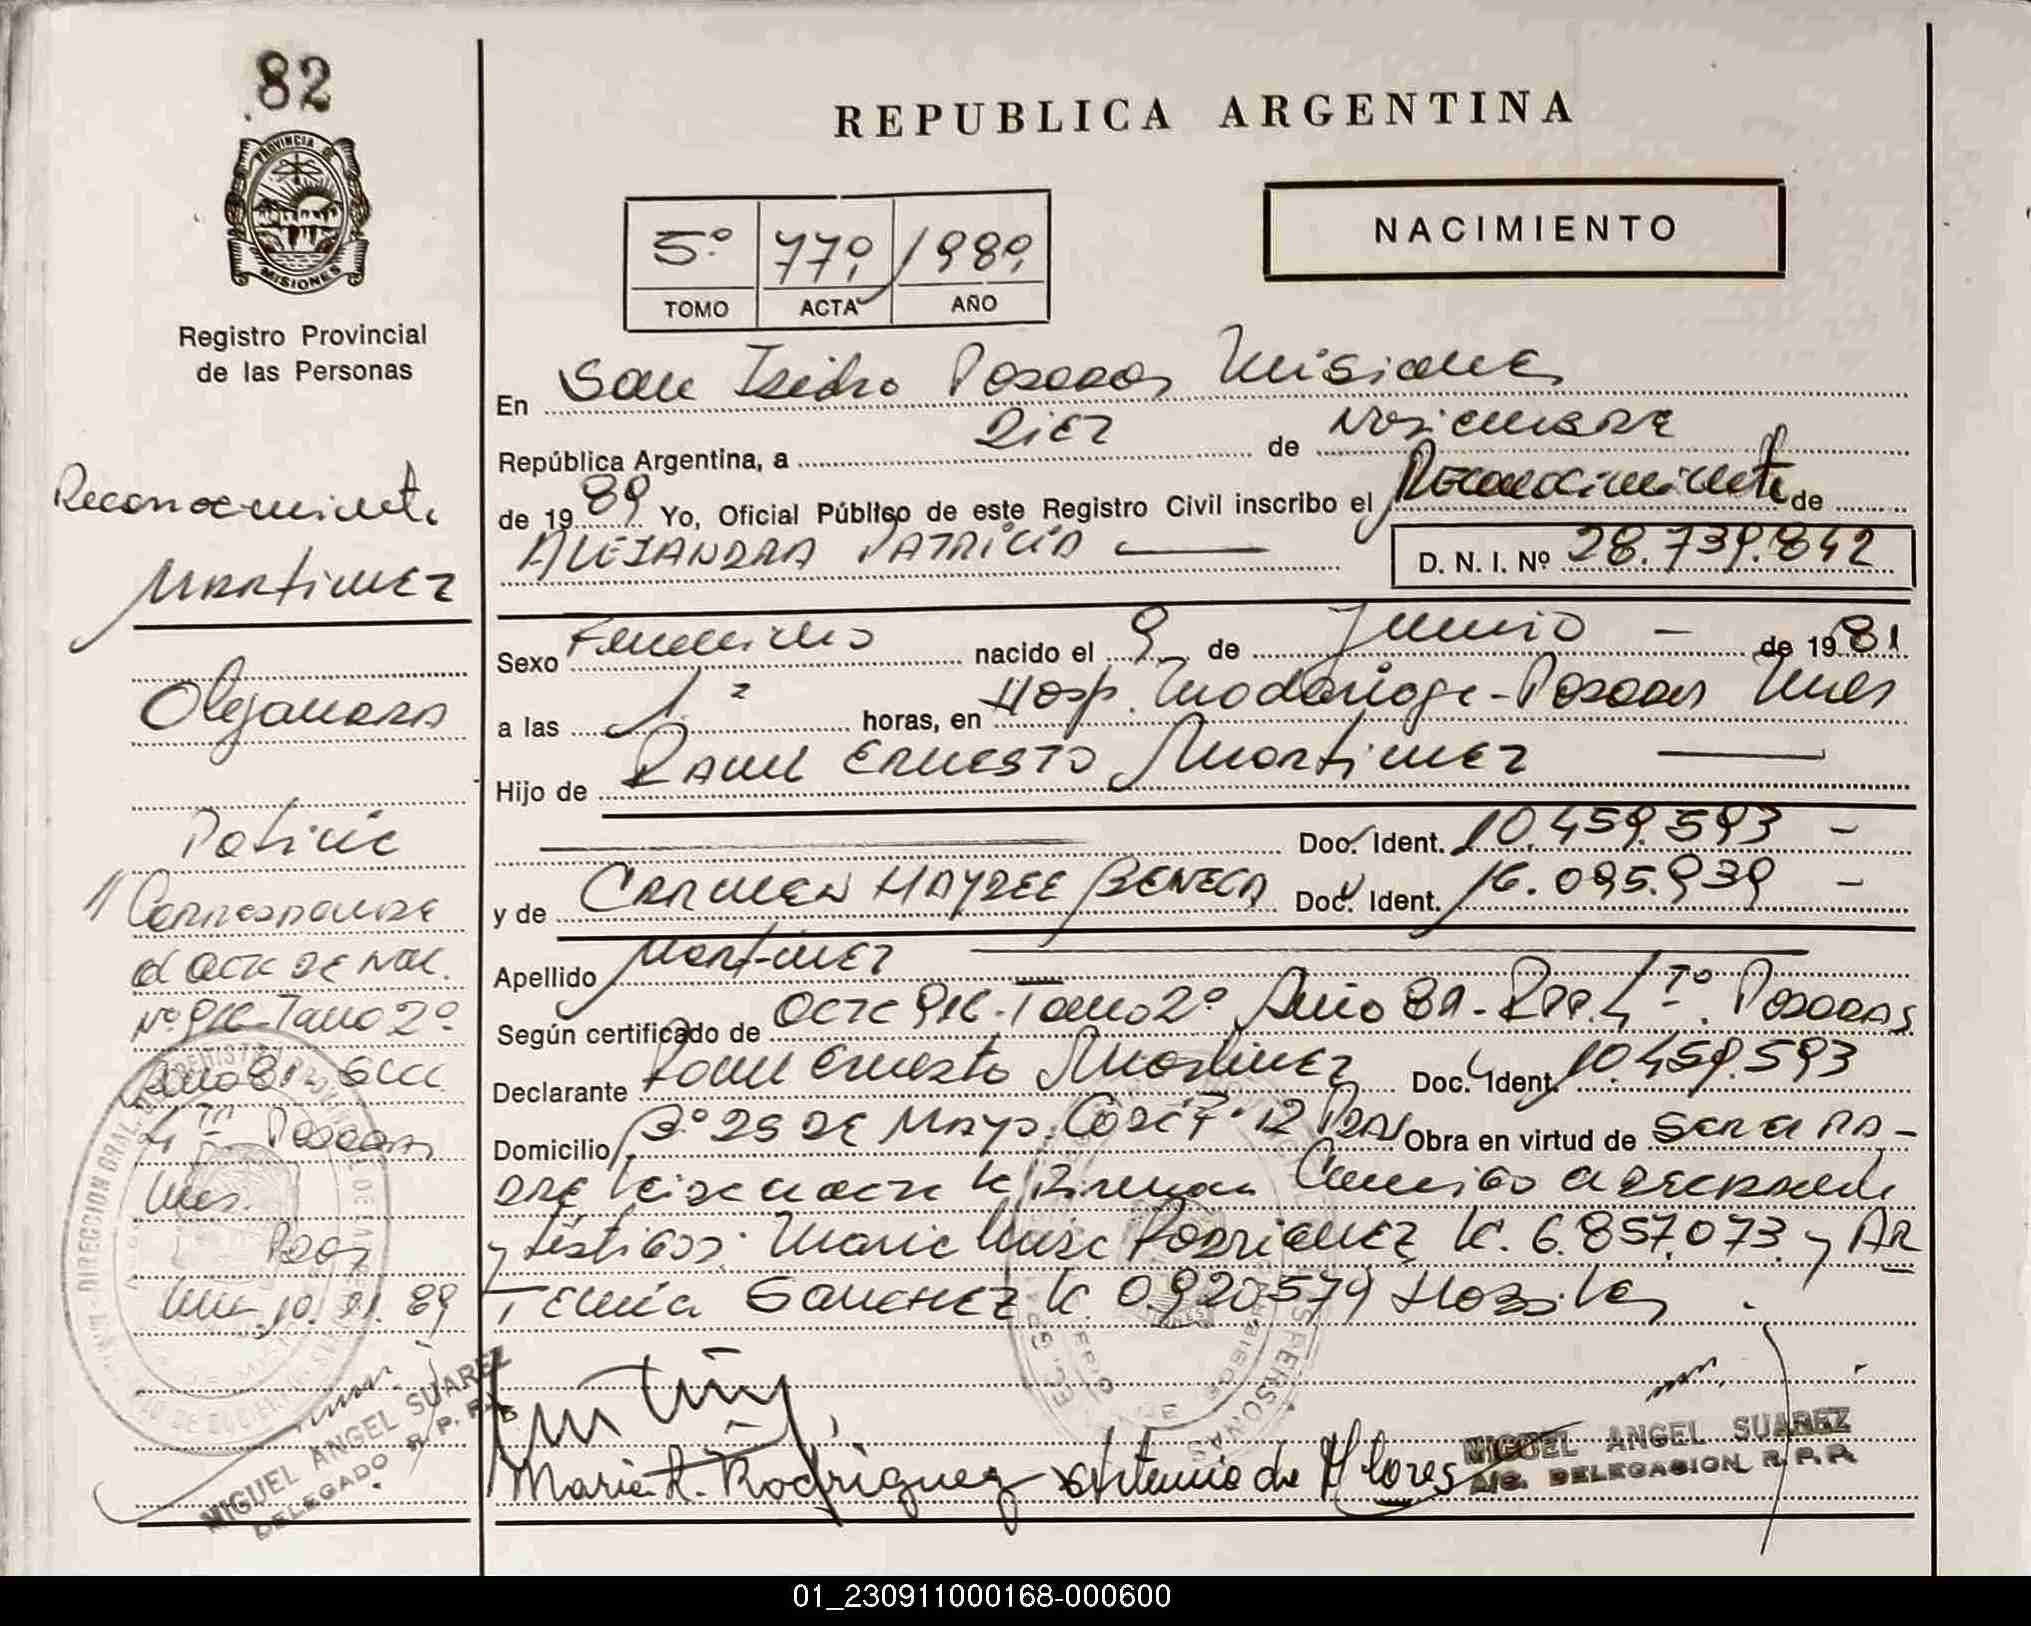 82
PROVINCIA DE
MISIONES
Registro Provincial
de las Personas
Reconocimiento
Martinez
Alejandra
Patricia
Corresponde
al acta de Nac.
Nº 916 Tomo 2º
Año 81 - Secc
4ta Posadas
Mnes.
Pdas
Mnes. 10.11.89
MIGUEL ANGEL SUAREZ
DELEGADO R. P. P.
REPUBLICA ARGENTINA
NACIMIENTO
5º 779 1989
TOMO ACTA AÑO
En San Isidro Posadas Misiones
República Argentina, a Diez de Noviembre
de 1989 Yo, Oficial Público de este Registro Civil inscribo el Reconocimiento de
ALEJANDRA PATRICIA D. N. I. Nº 28.739.842
Sexo Femenino nacido el 9 de Junio - de 1981
a las 1 horas, en Hosp. Madariaga - Posadas Mnes
Hijo de Raul Ernesto Martinez
Doc. Ident. 10.459.593 -
y de CARMEN HAYDEE BENEGA Doc. Ident. 16.095.939 -
Apellido Martinez
Según certificado de Acta 916 - Tomo 2º Año 81 - Rpp. 4ta. Posadas
Declarante Raul Ernesto Martinez Doc. Ident. 10.459.593
Domicilio Bº 25 de Mayo. Pdas Obra en virtud de Ser el Pa-
dre Leida el acta la firman Conmigo el declarante
y testigos: Maria Luisa Rodriguez 6.857.073 y Ar
temia Sanchez 0.920.579 Habiles
Maria R. Rodriguez Artemia de Flores
MIGUEL ANGEL SUAREZ
DELEGACION R. P. P.
01_230911000168-000600